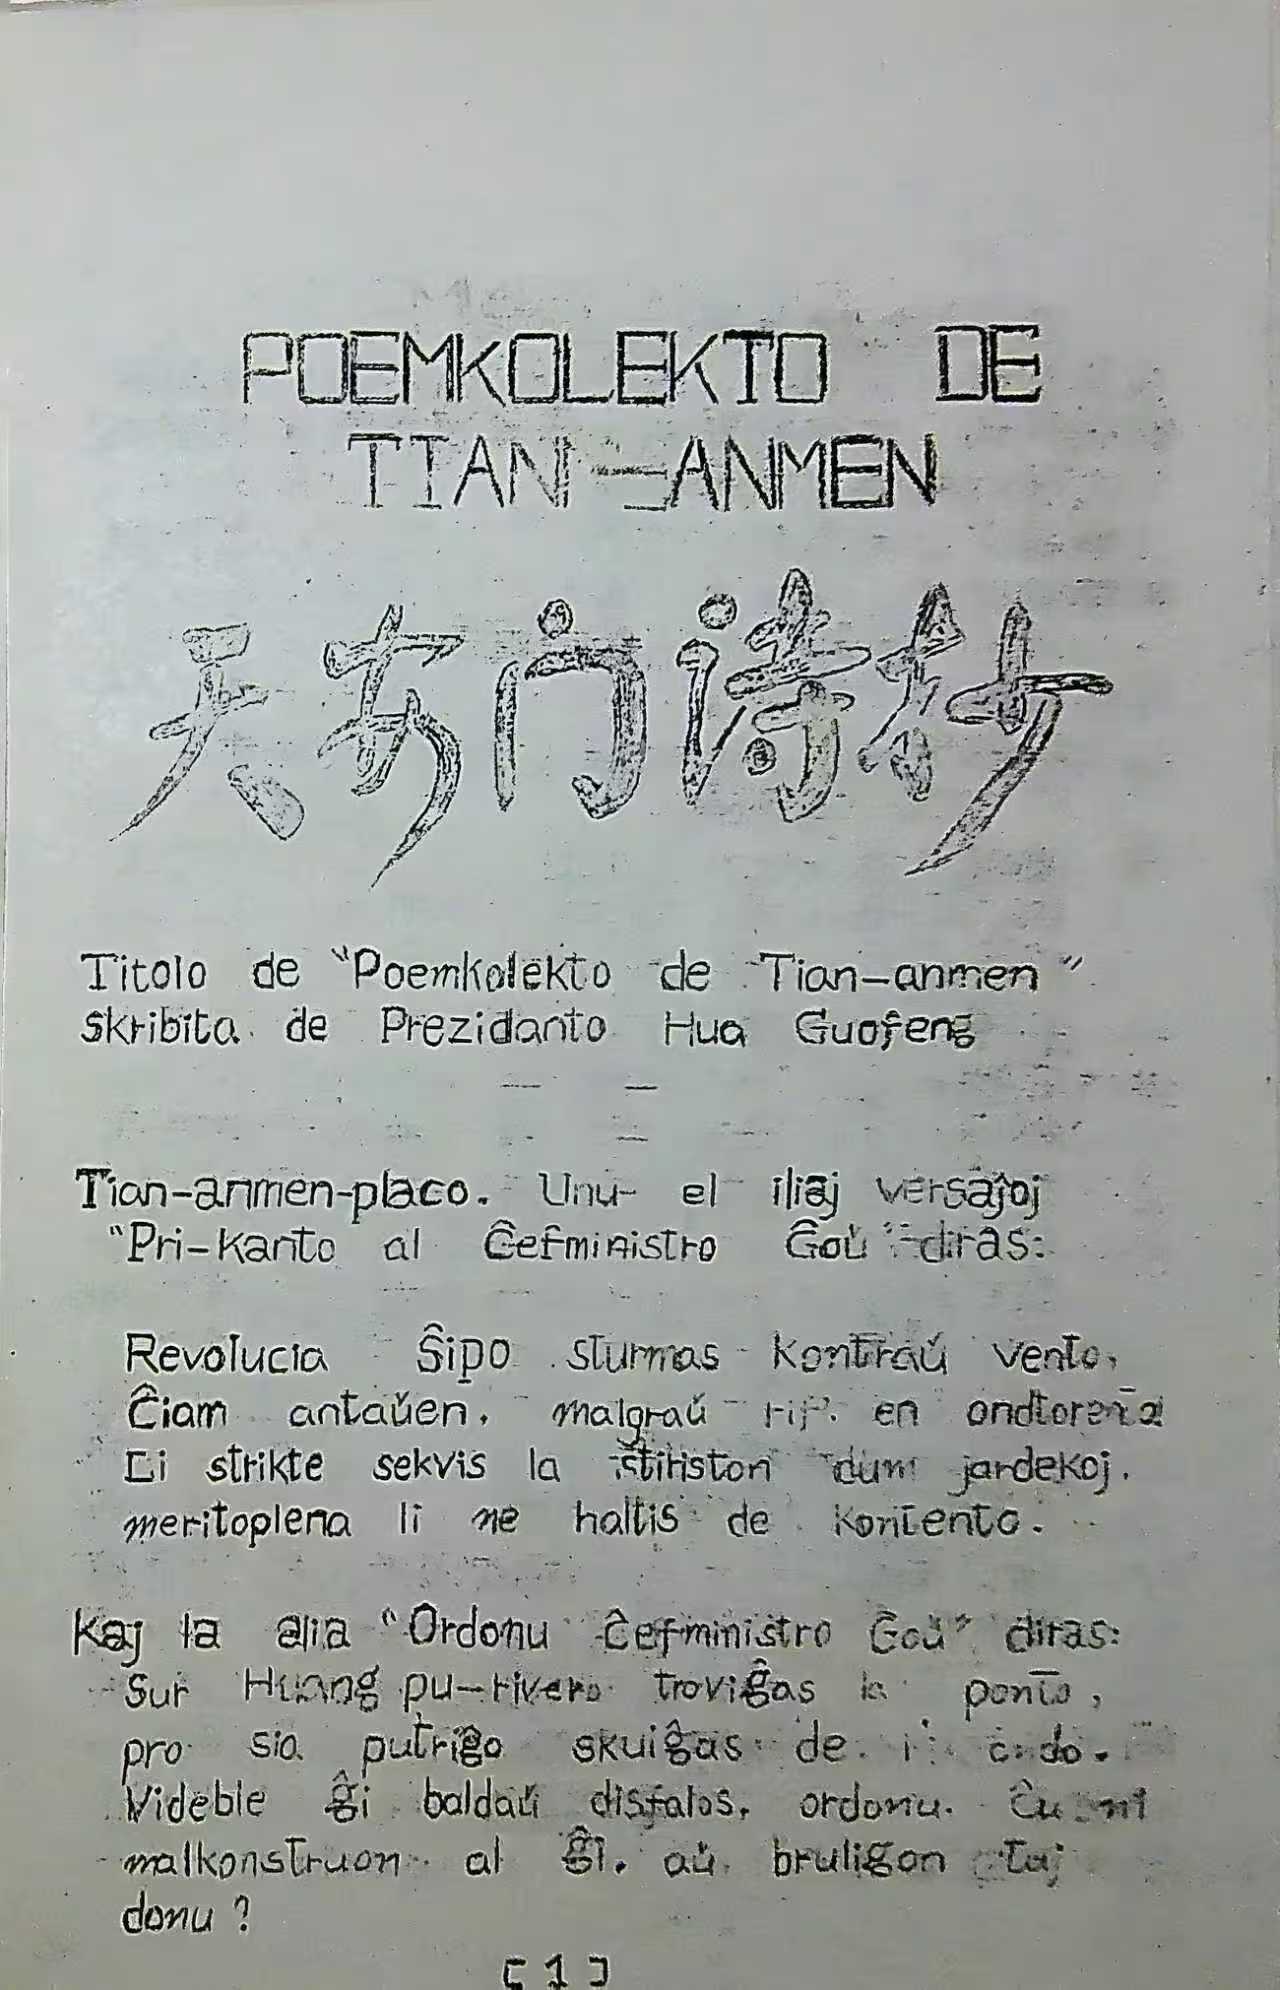 POEMKOLEKTO DE
TIAN-ANMEN
天安门诗抄
Titolo de "Poemkolekto de Tian-anmen"
skribita de Prezidanto Hua Guofeng
Tian-anmen-placo. Unu el iliaj versaĵoj
"Pri-kanto al Ĉefministro Ĝoŭ" diras:
Revolucia Ŝipo sturmas kontraŭ vento,
Ĉiam antaŭen, malgraŭ rif, en
Li strikte sekvis la dum jardekoj.
meritoplena li ne haltis de kontento.
kaj la alia "Ordonu Ĉefministro Ĝoŭ" diras:
Sur Huangpu-rivero troviĝas la ponto,
pro sia putriĝo skuiĝas de
Videble ĝi baldaŭ disfalos, ordonu. Ĉu ni
malkonstruon al ĝi, aŭ bruligon tuj
donu?
[1]